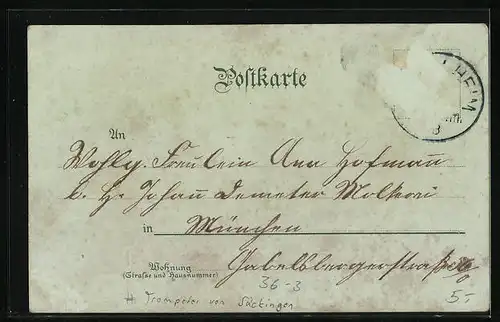 Postkarte
HEIM
8
An
Wohlg. Freulein Ana Hofmann
b. H. Johan Demeter Molkerei
in München
Wohnung
(Straße und Hausnummer)
Gabelsbergerstraße
36-3
# Trompeter von Säckingen
5.-